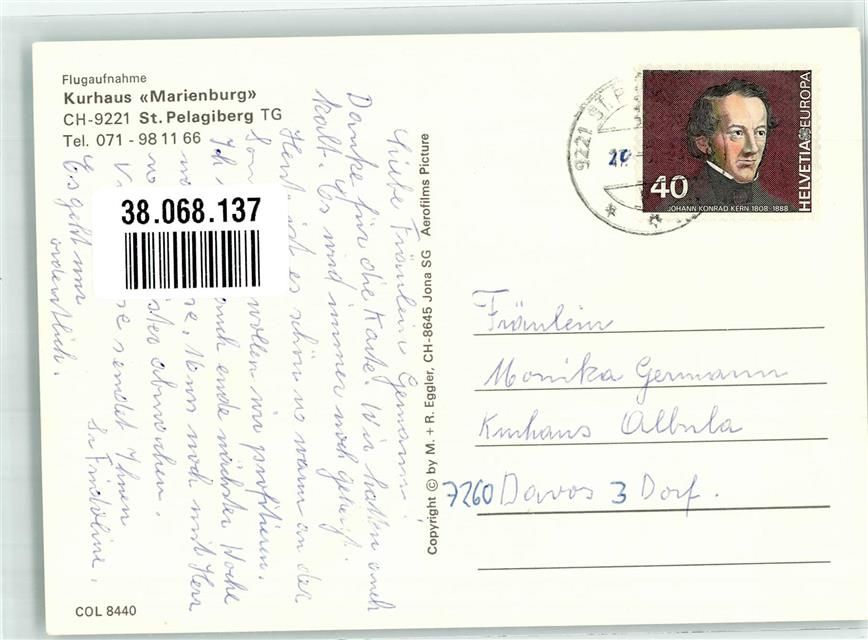 Flugaufnahme
Kurhaus «Marienburg»
CH-9221 St. Pelagiberg TG
Tel. 071 - 98 11 66
38.068.137
Liebe Fräulein Germann,
Danke für die Karte. Wir hatten auch
kalt. Es wird immer noch geheizt.
Heute ist es schön u warm an der
Son wollen wir profitieren.
Ich ende nächster Woche
noch mit Herr
abmachen.
sendet Ihnen
Sr Fridoline.
Es geht mir
ordentlich.
COL 8440
Copyright © by M. + R. Eggler, CH-8645 Jona SG Aerofilms Picture
9221 ST. P
40
JOHANN KONRAD KERN 1808-1888
HELVETIA EUROPA
Fräulein
Monika Germann
Kurhaus Albula
7260 Davos 3 Dorf.